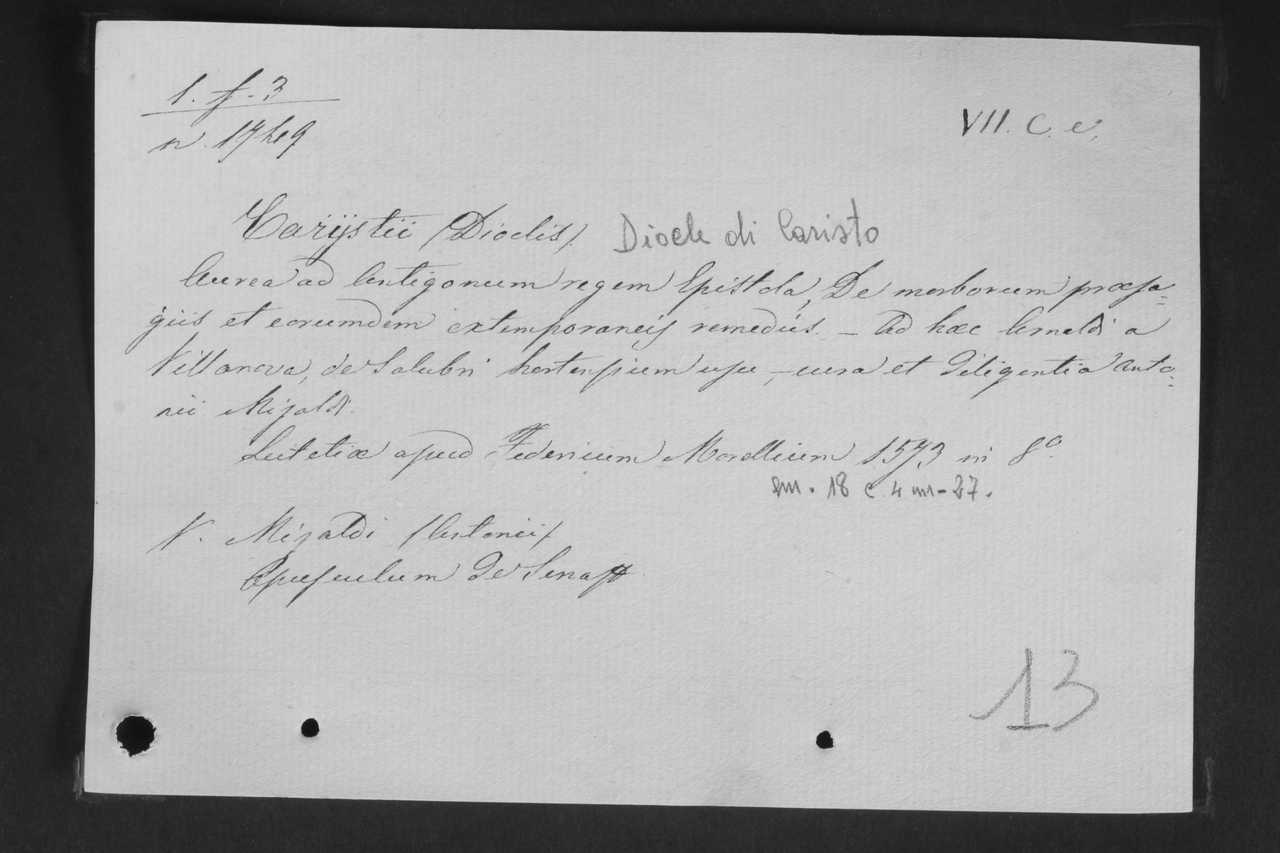 1. f. 3
n. 1749
VII. C. e.
Carijstii (Dioclis). Diocle di Caristo
Aurea ad Antigonum regem Epistola, De morborum præsa=
giis et eorumdem extemporaneis remediis. – Ad hæc Arnaldi a
Villanova, de Salubri hortensium usu, – cura et diligentia Anto=
nii Mizaldi.
Lutetiæ apud Federicum Morellium 1573 in 8°.
c. 4
V. Mizaldi (Antonii)
Opusculum de Sena
13